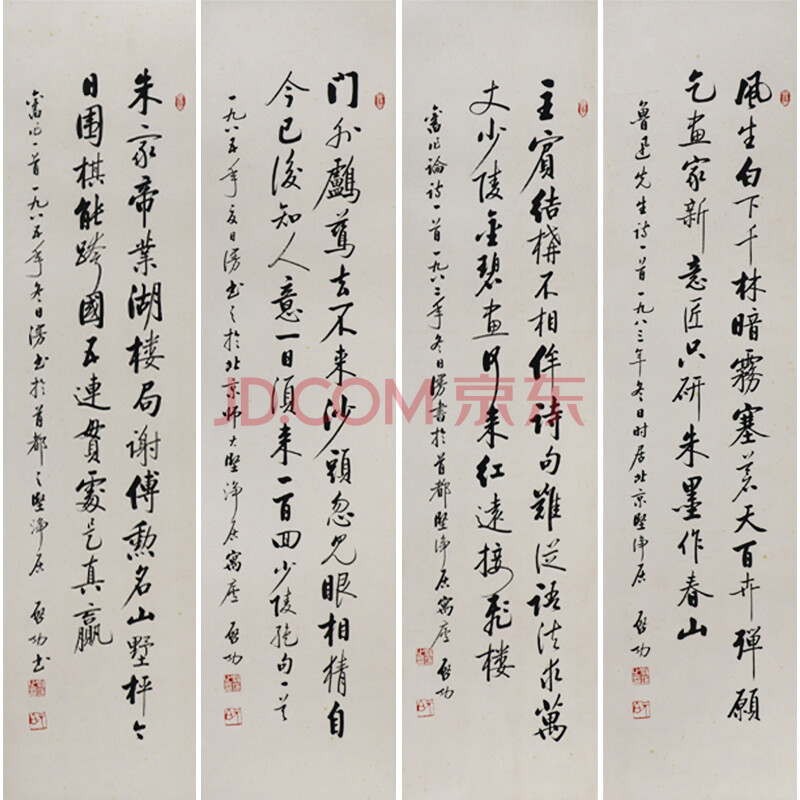 風生白下千林暗霧塞蒼天百卉殫願
乞畫家新意匠只研朱墨作春山
魯迅先生詩一首一九八三年冬日時居北京堅淨居 啟功
主賓結構不相侔詩句難從語法求萬
丈少陵金碧畫何來紅遠接飛樓
舊作論詩一首一九八三年冬日漫書於首都堅淨居寓廬 啟功
門外鸕鶿去不來沙頭忽見眼相猜自
今已後知人意一日須來一百回少陵絕句一首
一九八五年夏日漫書之於北京師大堅淨居寓廬 啟功
朱家帝業湖樓局謝傅勳名山墅枰今
日围棋能跨國五連貫處是真贏
舊作一首一九八五年冬日漫书於首都之堅淨居 啟功书
JD.COM 京东